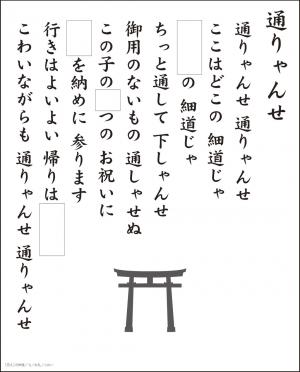 通りゃんせ
通りゃんせ 通りゃんせ
ここはどこの 細道じゃ
の 細道じゃ
ちっと通して 下しゃんせ
御用のないもの 通しゃせぬ
この子の つの お祝いに
を納めに 参ります
行きはよいよい 帰りは
こわいながらも 通りゃんせ 通りゃんせ